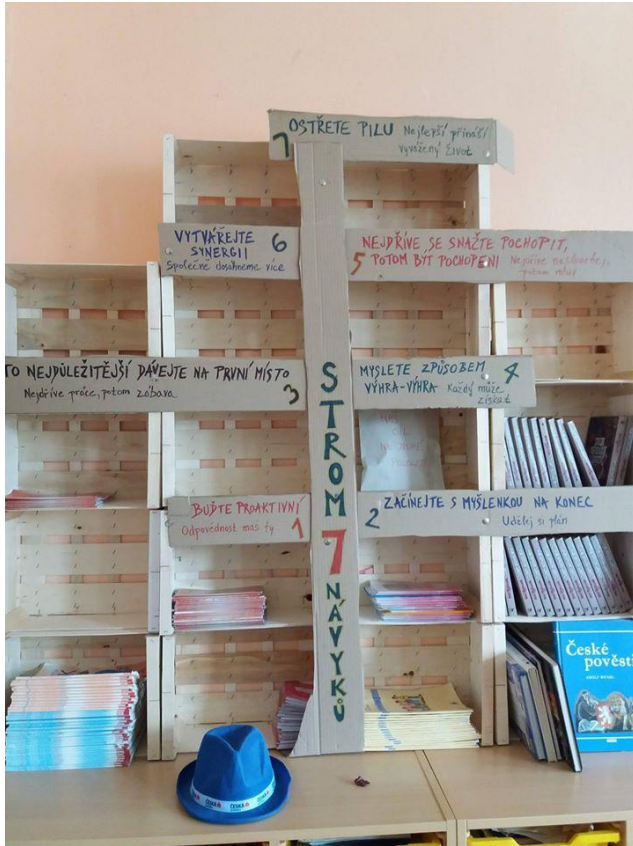 7 OSTŘETE PILU Nejlepší přináší
vyvážený život
VYTVÁŘEJTE 6
SYNERGII
Společně dosáhneme více
NEJDŘÍVE SE SNAŽTE POCHOPIT,
5 POTOM BÝT POCHOPENI Nejdříve
potom mluv
TO NEJDŮLEŽITĚJŠÍ DÁVEJTE NA PRVNÍ MÍSTO
Nejdříve práce, potom zábava 3
MYSLETE ZPŮSOBEM 4
VÝHRA-VÝHRA Každý může
získat
BUĎTE PROAKTIVNÍ
Odpovědnost máš ty 1
ZAČÍNEJTE S MYŠLENKOU NA KONEC
2 Udělej si plán
STROM 7 NÁVYKŮ
České
pověsti